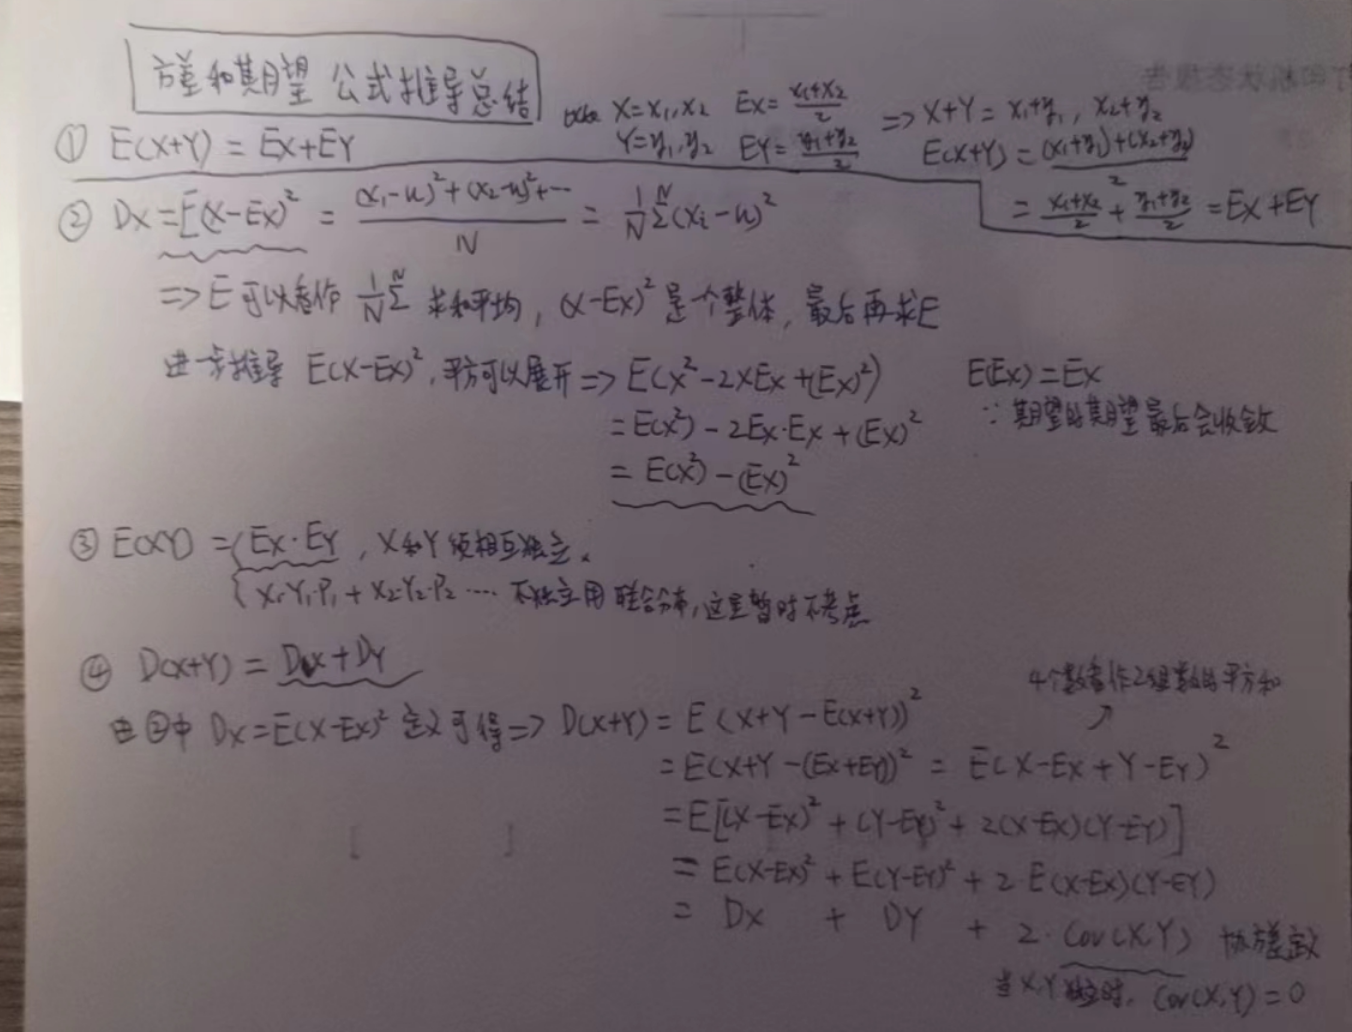 方差和期望 公式推导总结
① E(X+Y) = EX+EY
X = x₁, x₂ EX = (x₁+x₂)/2 => X+Y = x₁+y₁, x₂+y₂
Y = y₁, y₂ EY = (y₁+y₂)/2 E(X+Y) = ((x₁+y₁)+(x₂+y₂))/2
= (x₁+x₂)/2 + (y₁+y₂)/2 = EX+EY
② DX = E(X-EX)² = ((x₁-u)²+(x₂-u)²+…)/N = 1/N Σᴺ(xᵢ-u)²
=> E可以看作 1/N Σᴺ 求和平均, (X-EX)² 是个整体, 最后再求E
进一步推导 E(X-EX)², 平方可以展开 => E(X²-2XEX+(EX)²) E(EX) = EX
= E(X²) - 2EX·EX + (EX)² ∵ 期望的期望最后会收敛
= E(X²) - (EX)²
③ E(XY) = { EX·EY, X和Y须相互独立.
X₁·Y₁·P₁ + X₂·Y₂·P₂ …. 不独立用联合分布, 这里暂时不考虑
④ D(X+Y) = DX+DY
4个数看作2组数的平方和
由②中 DX=E(X-EX)² 定义可得 => D(X+Y) = E(X+Y-E(X+Y))²
= E(X+Y-(EX+EY))² = E(X-EX+Y-EY)²
= E[(X-EX)²+(Y-EY)²+2(X-EX)(Y-EY)]
= E(X-EX)² + E(Y-EY)² + 2·E(X-EX)(Y-EY)
= DX + DY + 2·Cov(X,Y) 协方差定义
当X,Y独立时, Cov(X,Y)=0